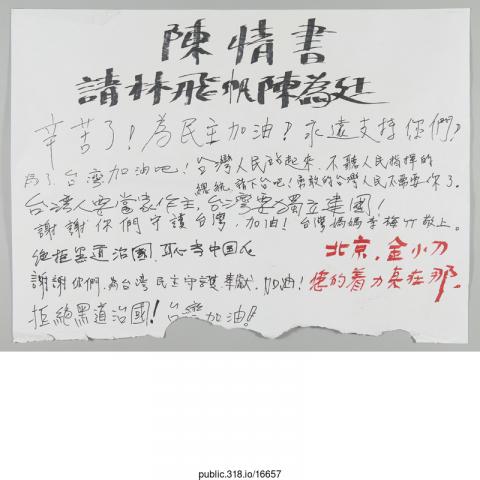 陳情書
請林飛帆陳為廷
辛苦了!為民主加油!永遠支持你們!
為了台湾加油吧!台灣人民站起來,不聽人民指揮的
總統請下台吧!勇敢的台灣人民不需要你了。
台湾人要當家作主,台灣要獨立建國!
謝謝你們守護台灣,加油!台灣媽媽李梅竹敬上。
絕拒黑道治國,恥當中国人
北京,金小刀
謝謝你們,為台灣民主守護,奉獻,加油!
您的着力臭在那.
拒絕黑道治國!台灣加油!
public.318.io/16657